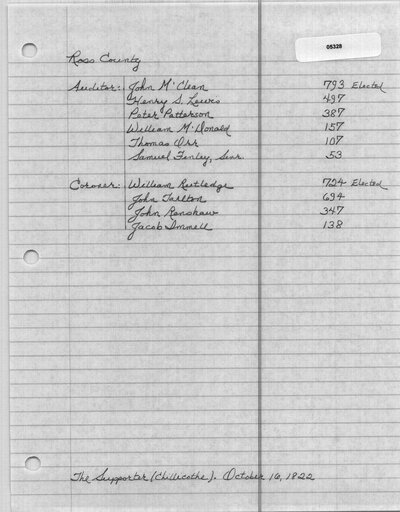 05328
Ross County
Auditor: John McClean 793 Elected
Henry S. Lewis 497
Peter Patterson 387
William McDonald 157
Thomas Orr 107
Samuel Finley, Senr. 53
Coroner: William Rutledge 724 Elected
John Tarlton 694
John Renshaw 347
Jacob Immell 138
The Supporter (Chillicothe). October 16, 1822